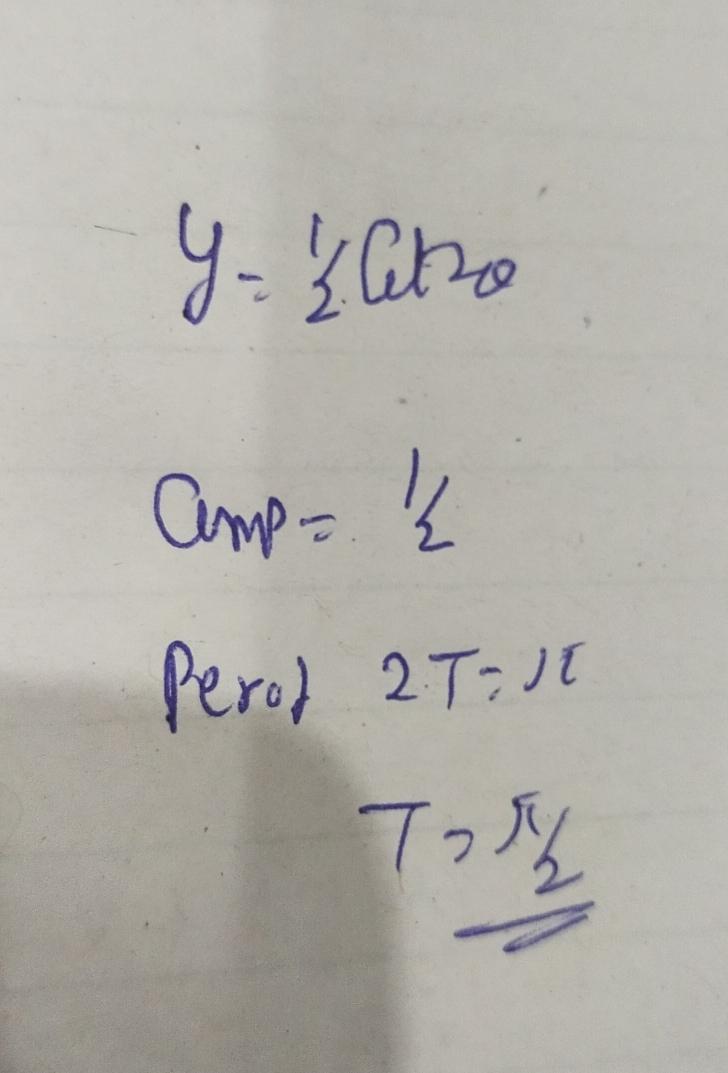 y = 1/2 Cot 2θ
Amp = 1/2
Perod 2T = π
T = π/2